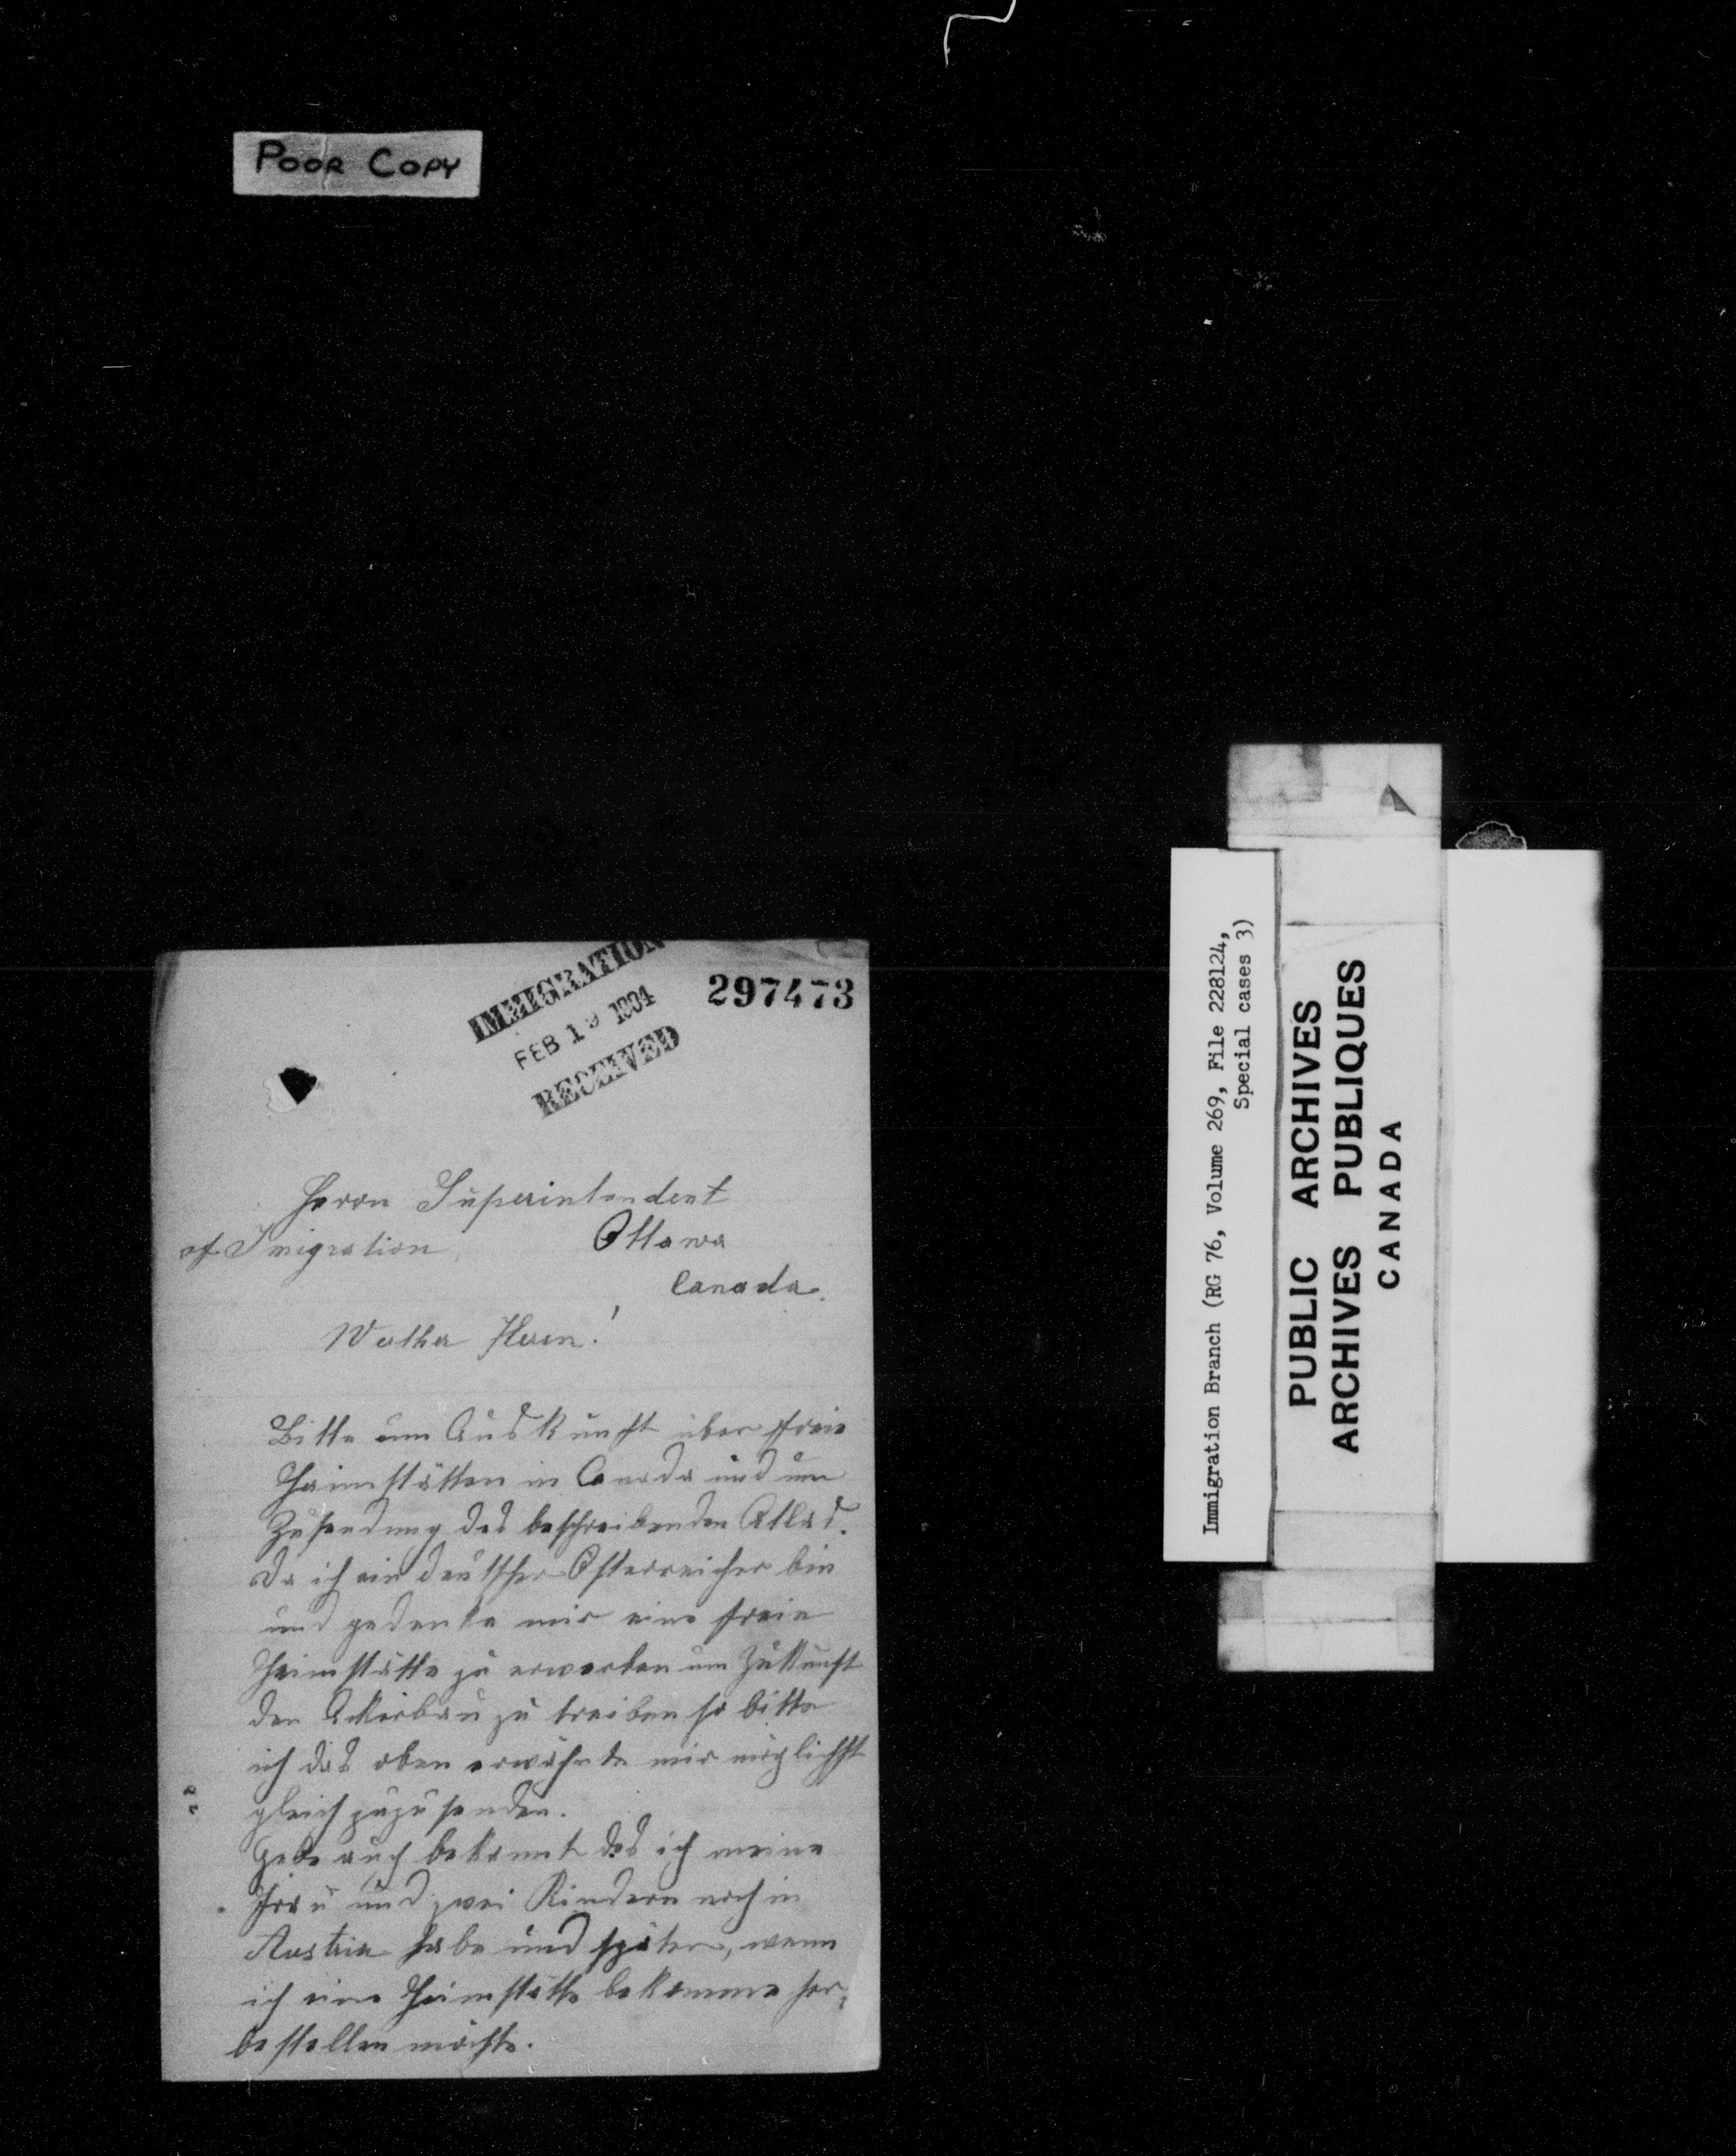 POOR COPY
IMMIGRATION
FEB 19 1904
RECEIVED
297473
Herrn Superintendent
of Imigration Ottawa
Canada.
Werther Herr!
Bitte um Auskunft über freie
Heimstätten in Canada und um
Zusendung des beschreibenden Atlas.
Da ich ein deutscher Österreicher bin
und gedenke mir eine freie
Heimstätte zu erwerben um Zukunft
den Ackerbau zu treiben so bitte
ich das oben erwähnte mir möglichst
gleich zuzusenden.
Gebe auch bekannt das ich meine
Frau und zwei Kindern noch in
Austria habe und später, wenn
ich eine Heimstätte bekomme her,
bestellen möchte.
Immigration Branch (RG 76, Volume 269, File 228124,
Special cases 3)
PUBLIC ARCHIVES
ARCHIVES PUBLIQUES
CANADA